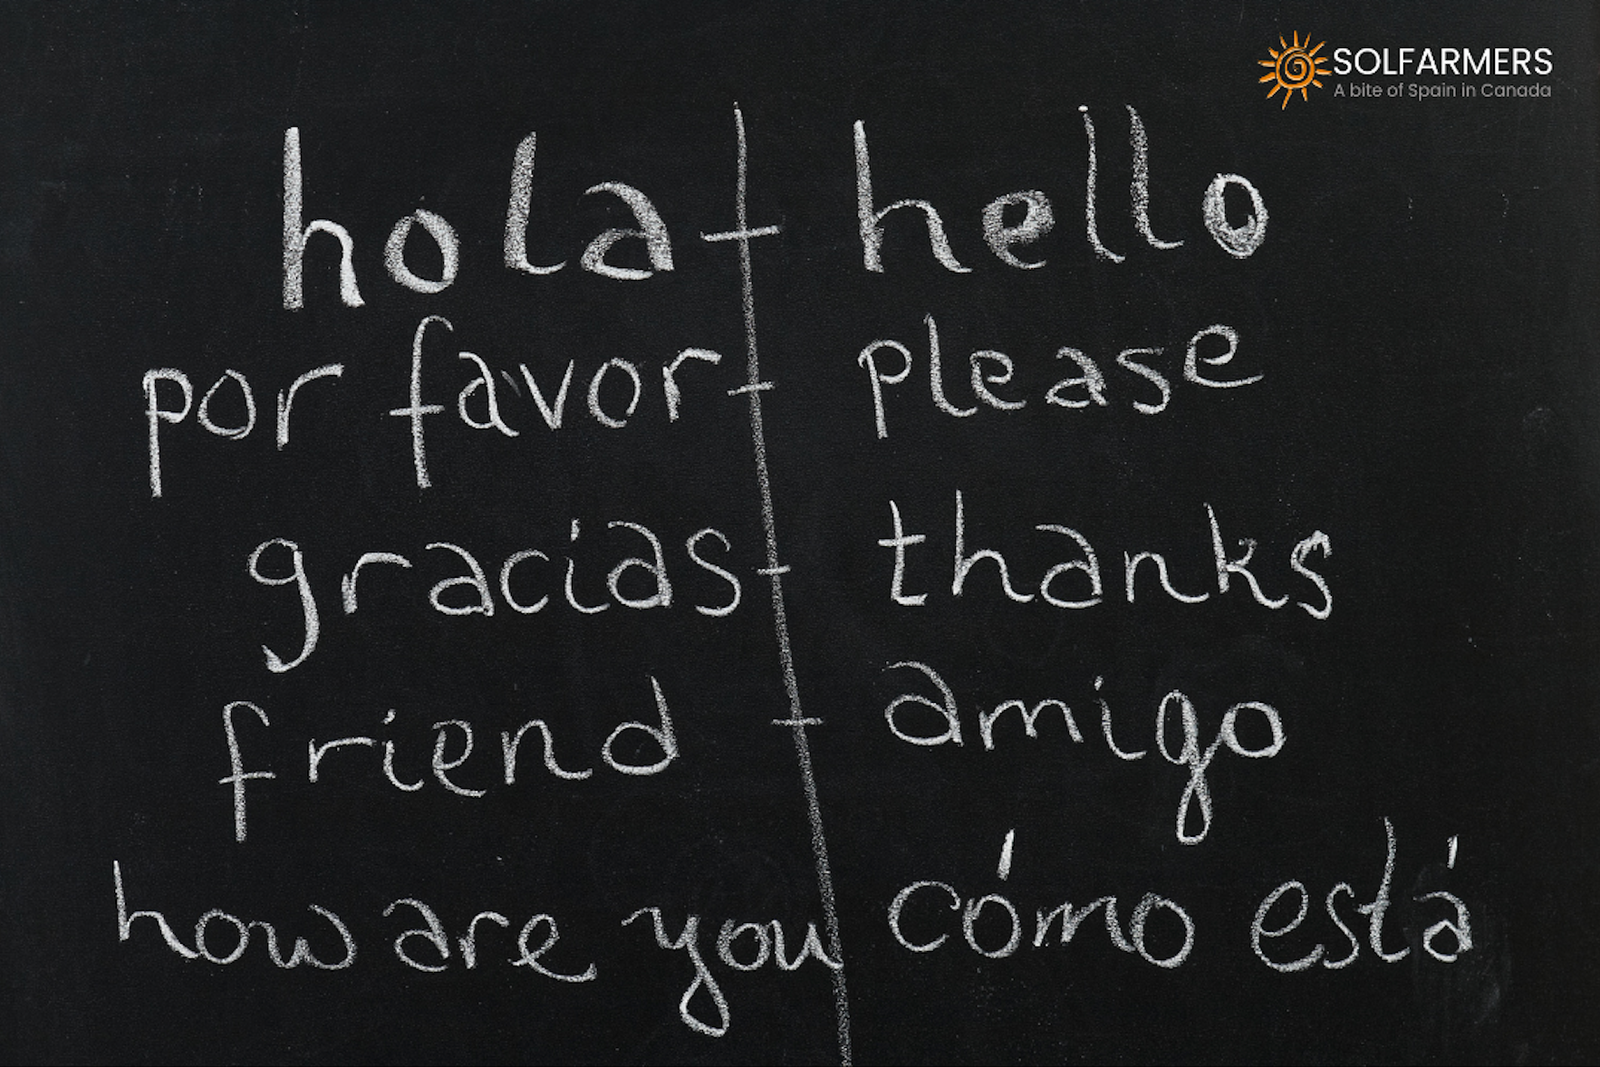 SOLFARMERS
A bite of Spain in Canada
hola - hello
por favor - please
gracias - thanks
friend - amigo
how are you cómo está